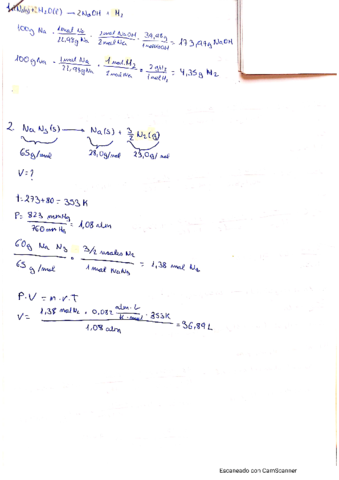 1. 2Na(s) + 2H₂O(l) → 2NaOH + H₂
100g Na · 1mol Na / 22,99g Na · 2mol NaOH / 2mol Na · 39,98g / 1molNaOH = 173,94g NaOH
100g Na · 1mol Na / 22,99g Na · 1mol H₂ / 2mol Na · 2g H₂ / 1mol H₂ = 4,35g H₂
2. Na N₃(s) → Na(s) + 3/2 N₂(g)
65g/mol 28,0g/mol 23,0g/mol
V=?
t=273+80= 353K
P= 823 mmHg / 760 mmHg = 1,08 atm
60g Na N₃ / 65 g/mol · 3/2 moles N₂ / 1 mol NaN₃ = 1,38 mol N₂
P.V = n.r.T
V= 1,38 molN₂ · 0,082 atm·L / K·mol · 353K / 1,08 atm = 36,89 L
Escaneado con CamScanner